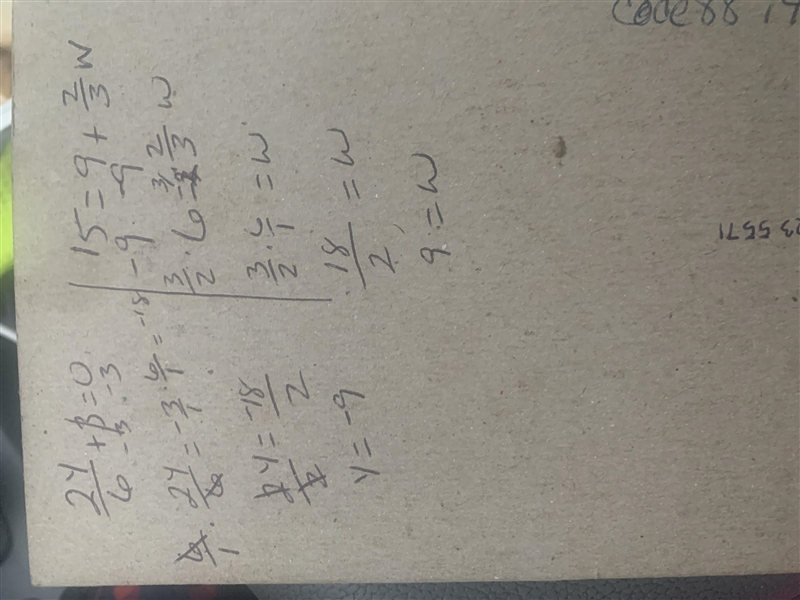 2y/6 + 3 = 0
-3 -3
6/1 · 2y/6 = -3/1 · 6/1 = -18
2y/2 = -18/2
y = -9
15 = 9 + 2/3 w
-9 -9
3/2 · 6 = 2/3 w
3/2 · 6/1 = w
18/2 = w
9 = w
Code 88
23 5571